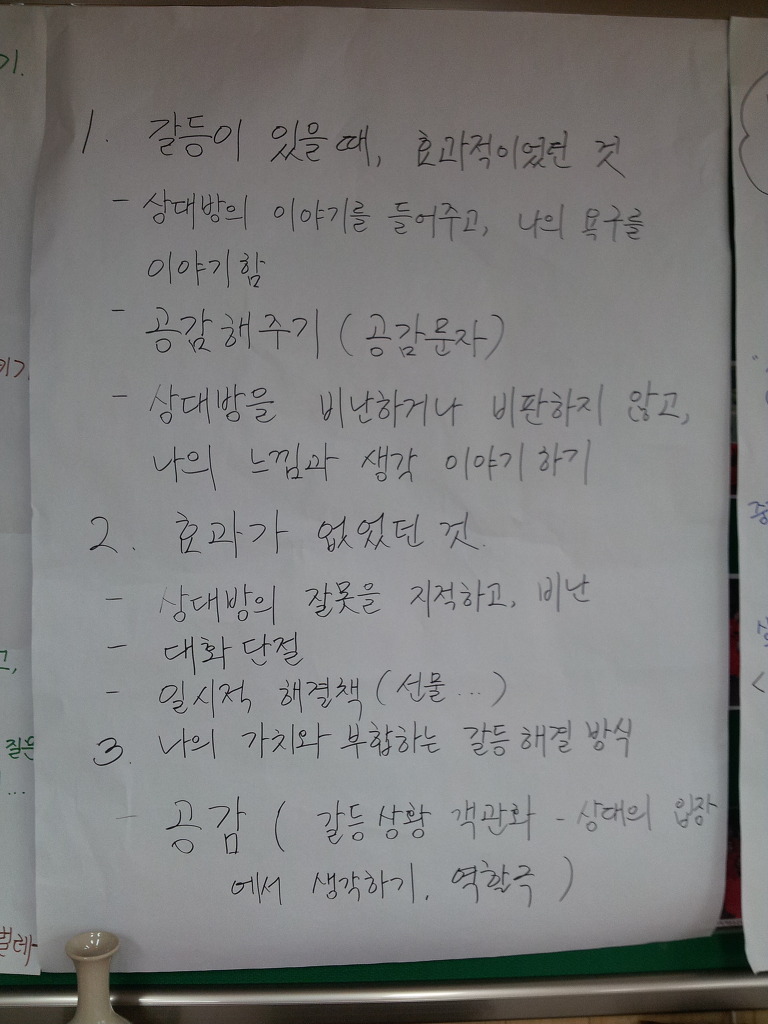 기.
1. 갈등이 있을때, 효과적이었던 것
- 상대방의 이야기를 들어주고, 나의 욕구를
이야기함
- 공감해주기 (공감문자)
- 상대방을 비난하거나 비판하지 않고,
나의 느낌과 생각 이야기하기
2. 효과가 없었던 것.
- 상대방의 잘못을 지적하고, 비난
- 대화단절
- 일시적 해결책 (선물...)
3. 나의 가치와 부합하는 갈등해결 방식
- 공감 ( 갈등상황 객관화 - 상대의 입장
에서 생각하기. 역할극 )
키기.
고,
질은
...
벌레-